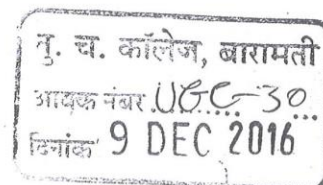 तु. च. कॉलेज, बारामती
आवक नंबर UGC-30
दिनांक 9 DEC 2016